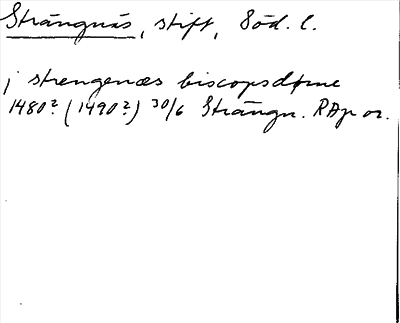 Strängnäs, stift, Söd. l.
j strengenæs biscopsdøme
1480? (1490?) 30/6 Strängn. RAp or.